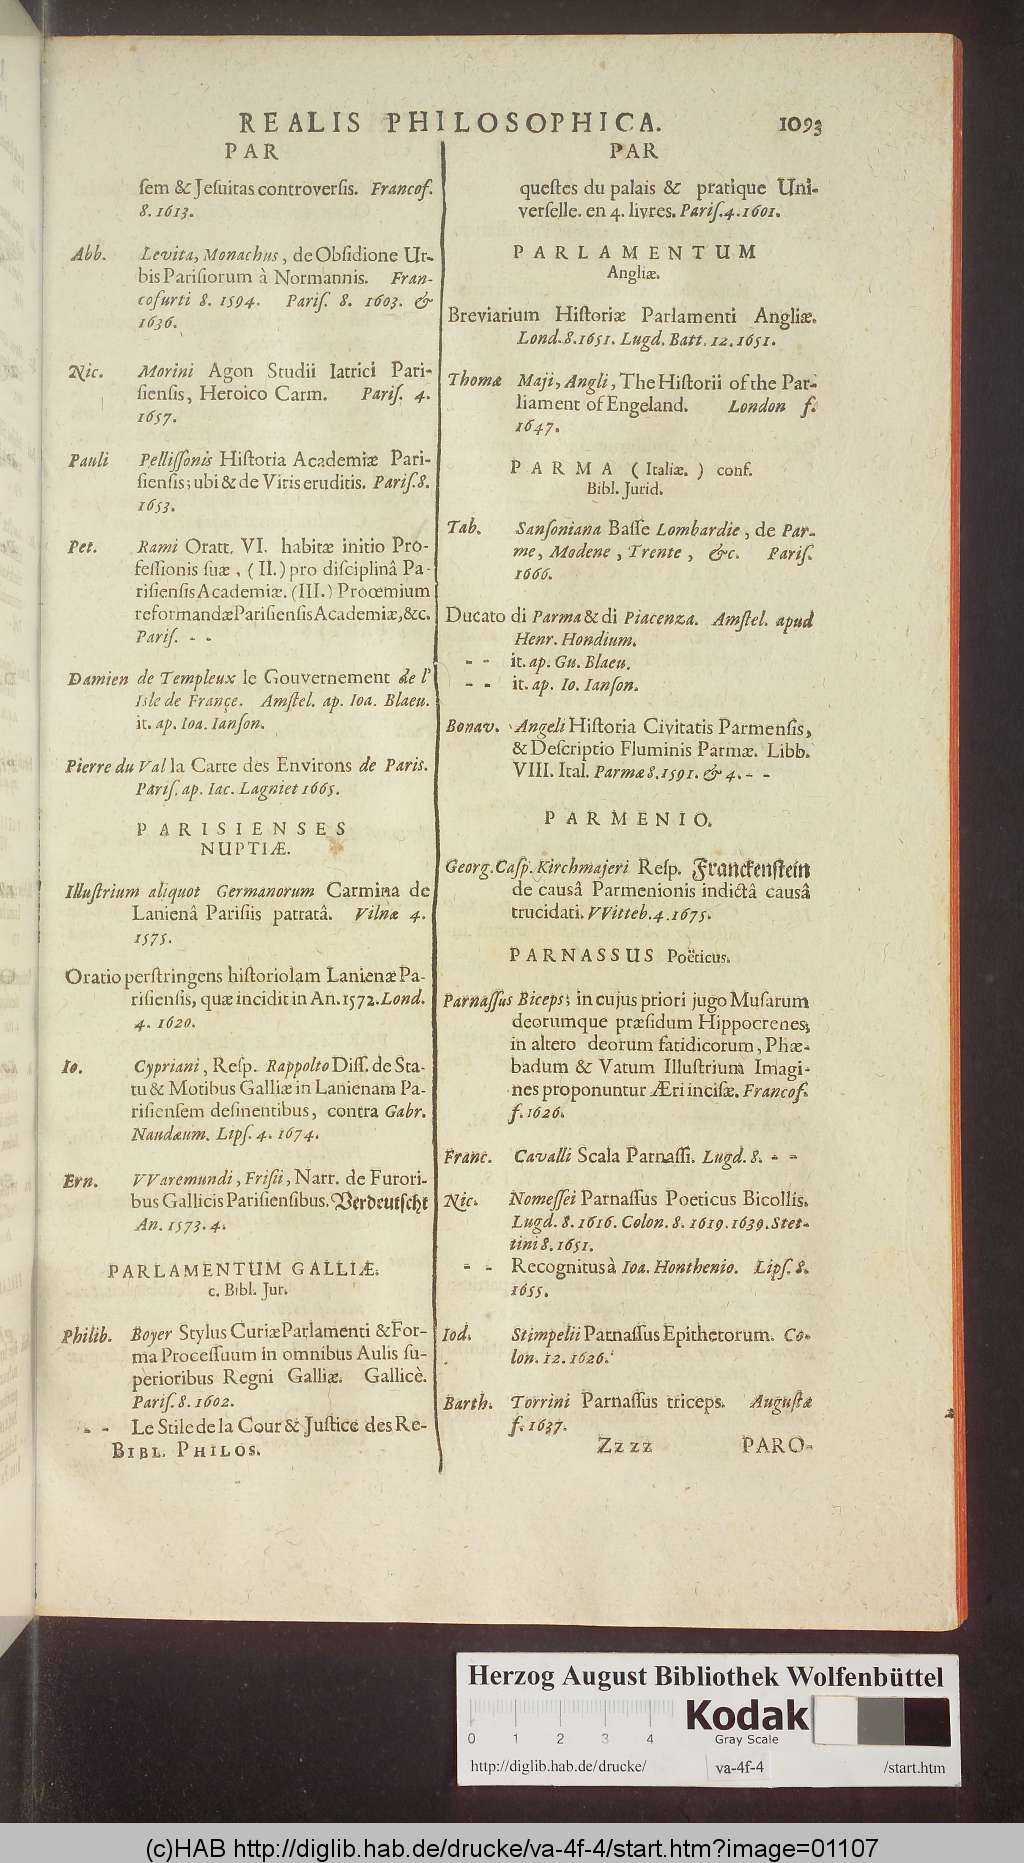 REALIS PHILOSOPHICA. 1093
PAR
ſem & Jeſuitas controverſis. Francof.
8. 1613.
Abb. Levita, Monachus, de Obſidione Ur-
bis Pariſiorum à Normannis. Fran-
cofurti 8. 1594. Pariſ. 8. 1603. &
1636.
Nic. Morini Agon Studii Iatrici Pari-
ſienſis, Heroico Carm. Pariſ. 4.
1657.
Pauli Pelliſſonis Hiſtoria Academiæ Pari-
ſienſis; ubi & de Viris eruditis. Pariſ. 8.
1653.
Pet. Rami Oratt. VI. habitæ initio Pro-
feſſionis ſuæ, (II.) pro diſciplinâ Pa-
riſienſis Academiæ. (III.) Procœmium
reformandæ Pariſienſis Academiæ, &c.
Pariſ. - -
Damien de Templeux le Gouvernement de l'
Isle de França. Amſtel. ap. Ioa. Blaeu.
it. ap. Ioa. Ianſon.
Pierre du Val la Carte des Environs de Paris.
Pariſ. ap. Iac. Lagniet 1665.
PARISIENSES
NUPTIÆ.
Illuſtrium aliquot Germanorum Carmina de
Lanienâ Pariſiis patratâ. Vilnæ 4.
1575.
Oratio perſtringens hiſtoriolam Lanienæ Pa-
riſienſis, quæ incidit in An. 1572. Lond.
4. 1620.
Io. Cypriani, Reſp. Rappolto Diſſ. de Sta-
tu & Motibus Galliæ in Lanienam Pa-
riſienſem deſinentibus, contra Gabr.
Naudæum. Lipſ. 4. 1674.
Ern. VVaremundi, Friſii, Narr. de Furori-
bus Gallicis Pariſienſibus. Verdeutſcht
An. 1573. 4.
PARLAMENTUM GALLIÆ.
c. Bibl. Jur.
Philib. Boyer Stylus Curiæ Parlamenti & For-
ma Proceſſuum in omnibus Aulis ſu-
perioribus Regni Galliæ. Gallicè.
Pariſ. 8. 1602.
- - Le Stile de la Cour & Juſtice des Re-
BIBL. PHILOS.
PAR
queſtes du palais & pratique Uni-
verſelle. en 4. livres. Pariſ. 4. 1601.
PARLAMENTUM
Angliæ.
Breviarium Hiſtoriæ Parlamenti Angliæ.
Lond. 8. 1651. Lugd. Batt. 12. 1651.
Thomæ Maji, Angli, The Hiſtorii of the Par-
liament of Engeland. London f.
1647.
PARMA (Italiæ.) conf.
Bibl. Jurid.
Tab. Sanſoniana Baſſe Lombardie, de Par-
me, Modene, Trente, &c. Pariſ.
1666.
Ducato di Parma & di Piacenza. Amſtel. apud
Henr. Hondium.
- - it. ap. Gu. Blaeu.
- - it. ap. Io. Ianſon.
Bonav. Angeli Hiſtoria Civitatis Parmenſis,
& Deſcriptio Fluminis Parmæ. Libb.
VIII. Ital. Parmæ 8. 1591. & 4. - -
PARMENIO.
Georg. Caſp. Kirchmajeri Reſp. Franckenſtein
de causâ Parmenionis indictâ causâ
trucidati. VVitteb. 4. 1675.
PARNASSUS Poëticus.
Parnaſſus Biceps; in cujus priori jugo Muſarum
deorumque præſidum Hippocrenes,
in altero deorum fatidicorum, Phæ-
badum & Vatum Illuſtrium Imagi-
nes proponuntur Æri inciſæ. Francof.
f. 1626.
Franc. Cavalli Scala Parnaſſi. Lugd. 8. - -
Nic. Nomeſſei Parnaſſus Poeticus Bicollis.
Lugd. 8. 1616. Colon. 8. 1619. 1639. Stet-
tini 8. 1651.
- - Recognitus à Ioa. Honthenio. Lipſ. 8.
1655.
Iod. Stimpelii Parnaſſus Epithetorum. Co-
lon. 12. 1626.
Barth. Torrini Parnaſſus triceps. Auguſtæ
f. 1637.
Zzzz PARO-
Herzog August Bibliothek Wolfenbüttel
0 1 2 3 4
Kodak
Gray Scale
http://diglib.hab.de/drucke/ va-4f-4 /start.htm
(c)HAB http://diglib.hab.de/drucke/va-4f-4/start.htm?image=01107